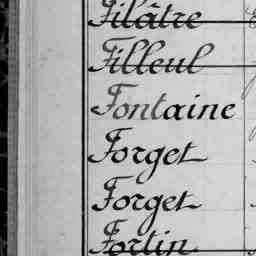 Filâtre
Filleul
Fontaine
Forget
Forget
Fortin